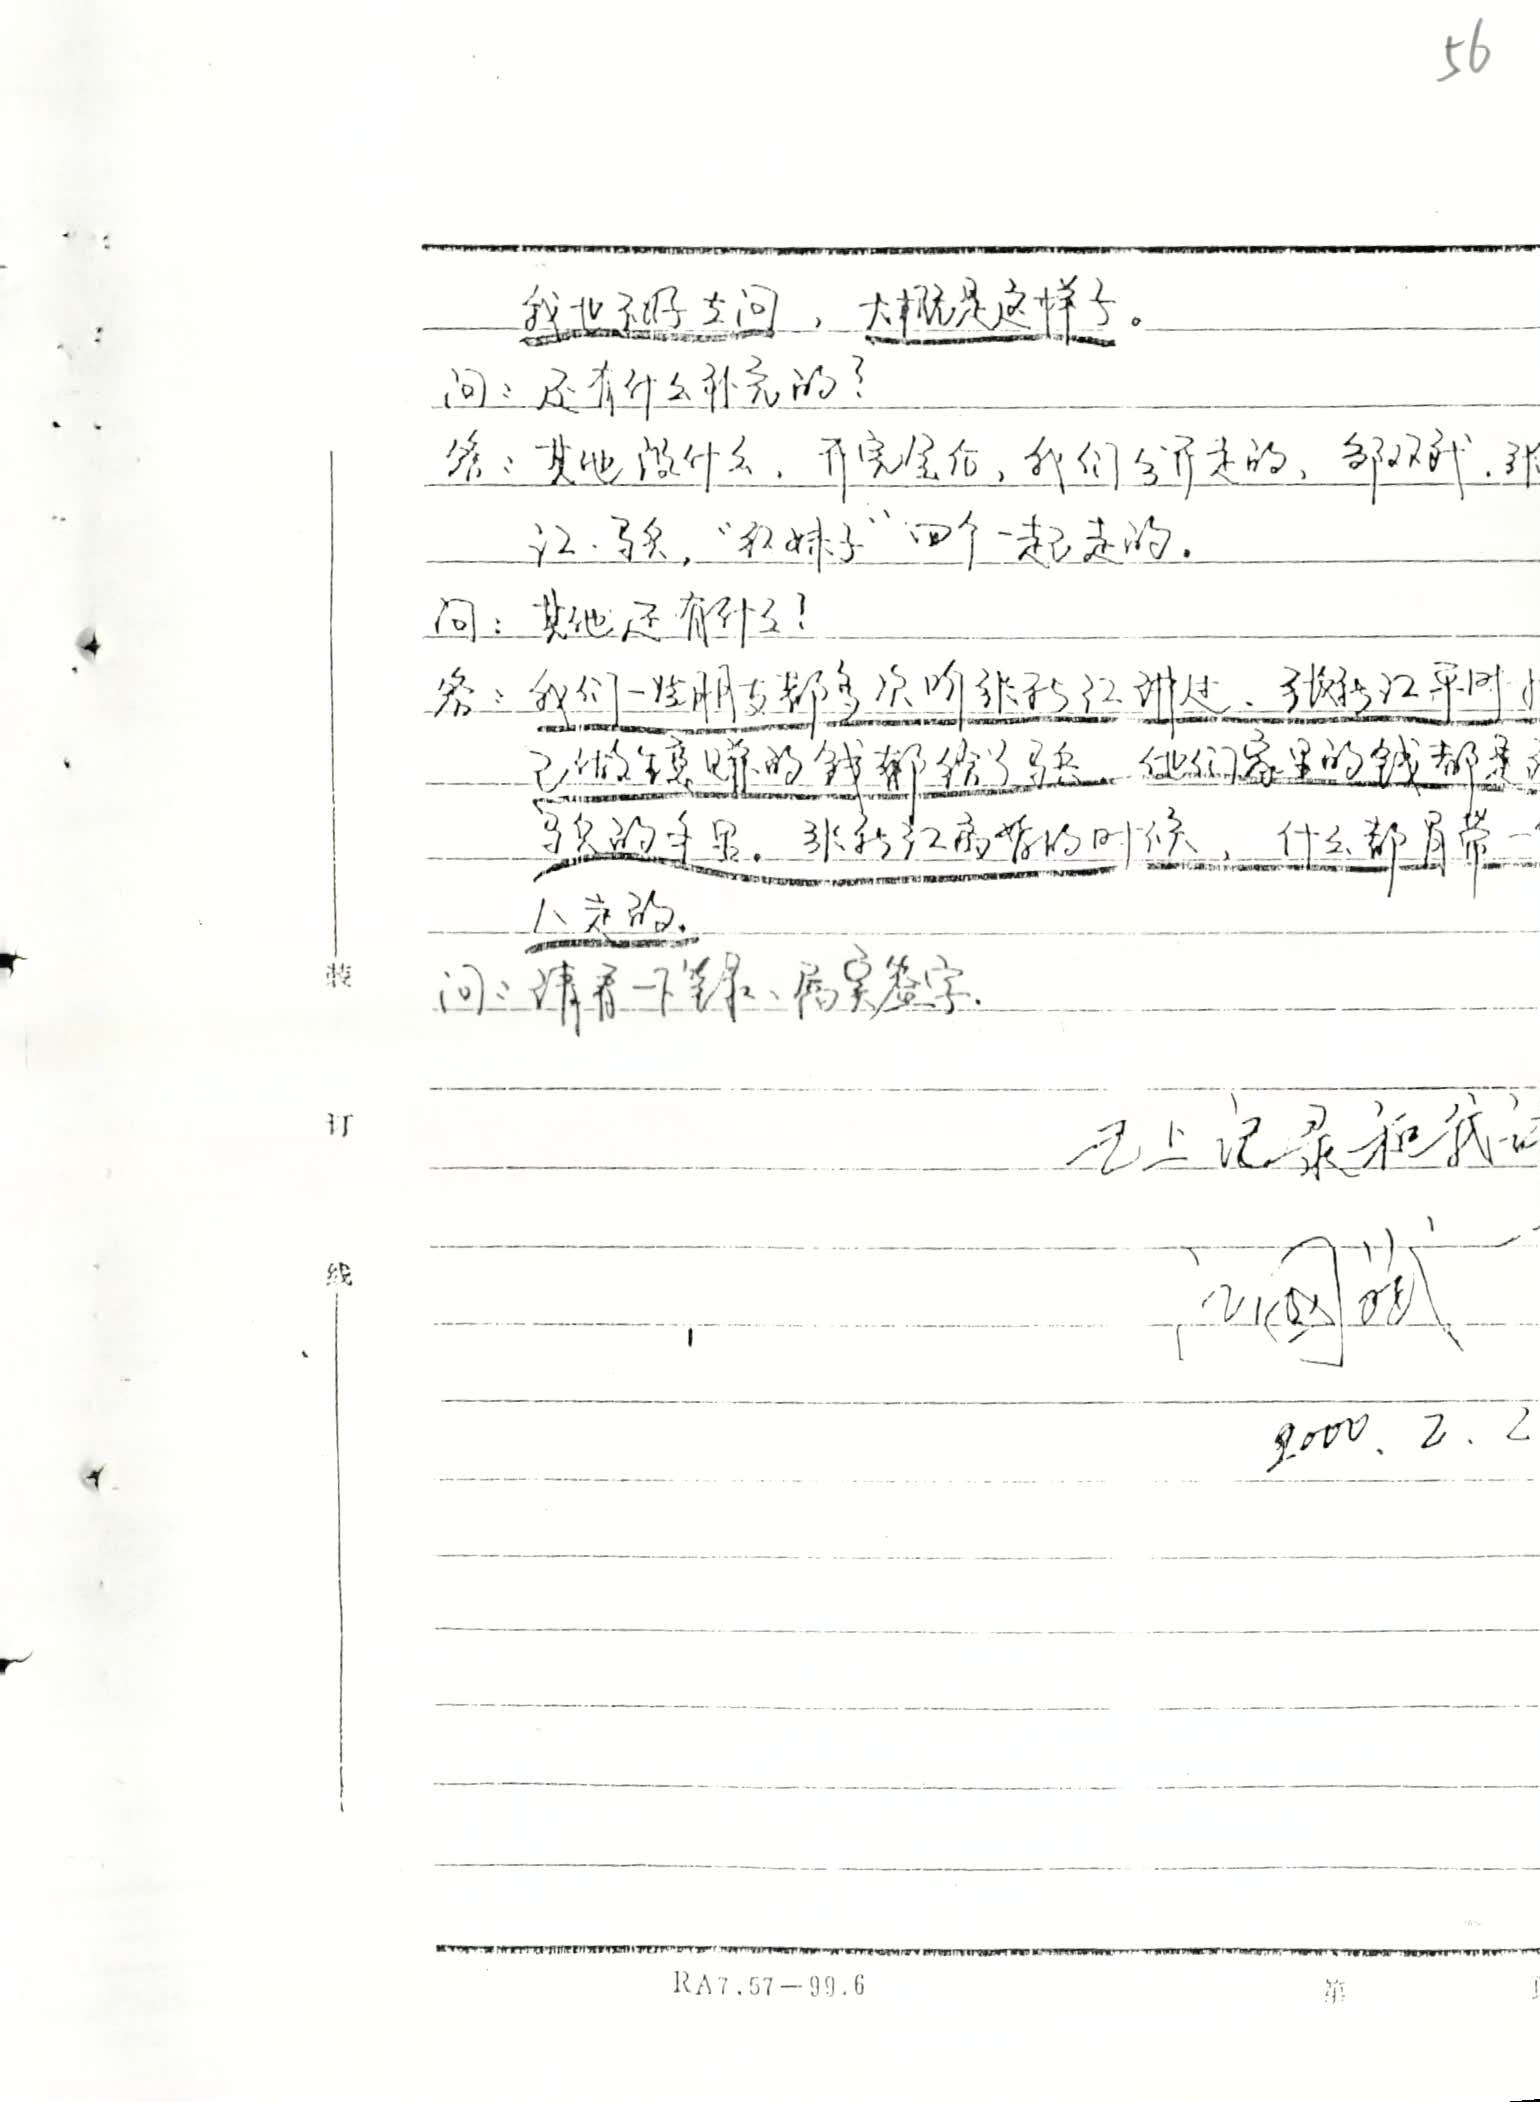 56
我也不好去问，大概是这样子。
问：还有什么补充的？
答：其他没什么，开完会后，我们分开走的，邹双武、张
江、马兵，“红妹子”四个一起走的。
问：其他还有什么？
答：我们一些朋友都多次听张新江讲过、张新江平时
己做生意赚的钱都给了马兵，他们家里的钱都是
马兵的手里。张新江离婚的时候，什么都肯带一
人走的。
问：请看一下笔录、属实签字.
装
已上记录和我
订
线
2000.2.2
RA7.57—99.6
第